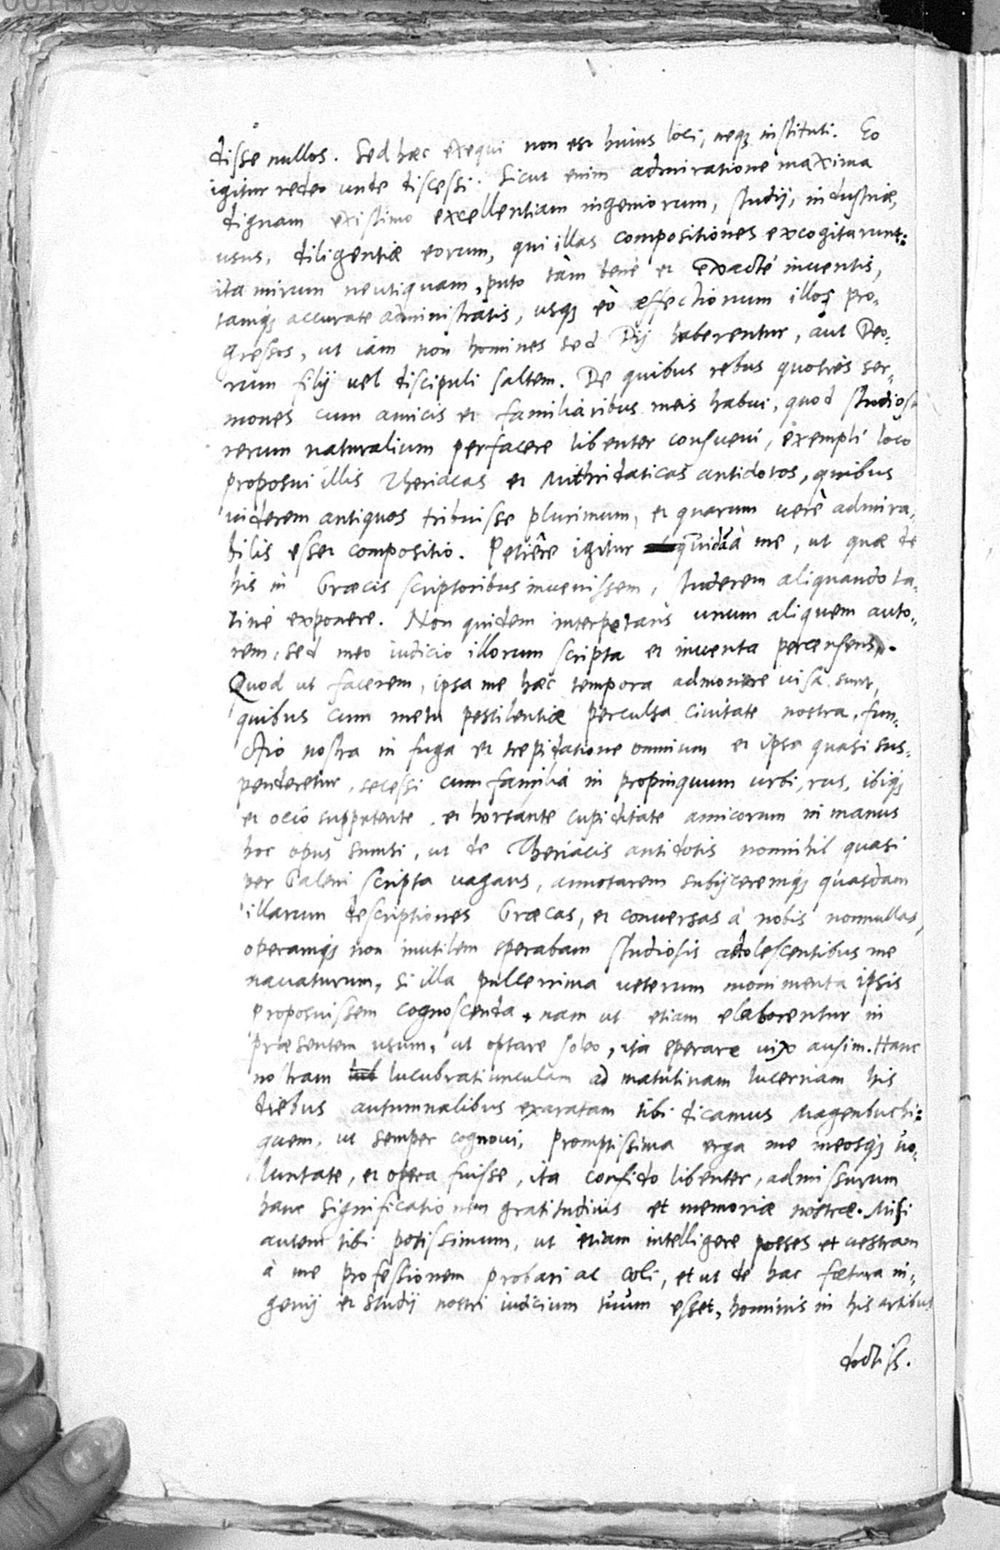 disse nullos. Sed hæc exequi non est huius loci, neq; instituti. Eo
igitur redeo unde discessi. Sicut enim admiratione maxima
dignam existimo excellentiam ingeniorum, studij, industriæ,
usus, diligentiæ eorum, qui illas compositiones excogitarunt:
ita mirum neutiquam, puto tàm benè et exactè inventis,
tamq; accurate administratis, usq; eò affectionum illos pro-
gressos, ut iàm non homines sed Dij haberentur, aut Deo-
rum filij uel discipuli saltem. De quibus rebus quoties ser-
mones cum amicis et familiaribus meis habui, quod studiosis
rerum naturalium perfacere libenter consuevi, exempli loco
proposui illis Theriacas et Mithridaticas antidotos, quibus
viderem antiquos tribuisse plurimum, et quarum verè admira-
bilis esset compositio. Petiêre igitur quidā à me, ut quæ de
his in Græcis scriptoribus invenissem, studerem aliquando la-
tinè exponere. Non quidem interpretans unum aliquem auto-
rem, sed meo iudicio illorum scripta et inventa percensens.
Quod ut facerem, ipsa me hæc tempora admonere visa sunt,
quibus cum metu pestilentiæ perculsa civitate nostra, fun-
ctio nostra in fuga et trepidatione omnium et ipsa quasi sus-
penderetur, secessi cum familia in propinquum urbi, rus, ibiq;
et ocio suppetente, et hortante cupiditate amicorum in manus
hoc opus sumsi, ut de Theriacis antidotis nonnihil quasi
per Galeni scripta vagans, annotarem subijceremq; quasdam
illarum descriptiones Græcas, et conversas à nobis nonnullas,
operamq; non inutilem sperabam studiosis adolescentibus me
navaturum, si illa pulcerrima veterum monimenta ipsis
proposuissem cognoscenda, nam ut etiam elaborentur in
præsentem usum, ut optare soleo, ita sperare vix ausim. Hanc
nostram lucubratiunculam ad matutinam lucernam his
diebus autumnalibus exaratam tibi dicamus Magenbuchi:
quem, ut semper cognovi, promptissima erga me meosq; vo-
luntate, et opera fuisse, ita confido libenter, admissurum
hanc significationem gratitudinis et memoriæ nostræ. Misi
autem tibi potissimum, ut etiam intelligere posses et vestram
à me professionem probari ac coli, et ut de hac fœtura in-
genij et studij nostri iudicium tuum esset, hominis in his artibus
doctiss.